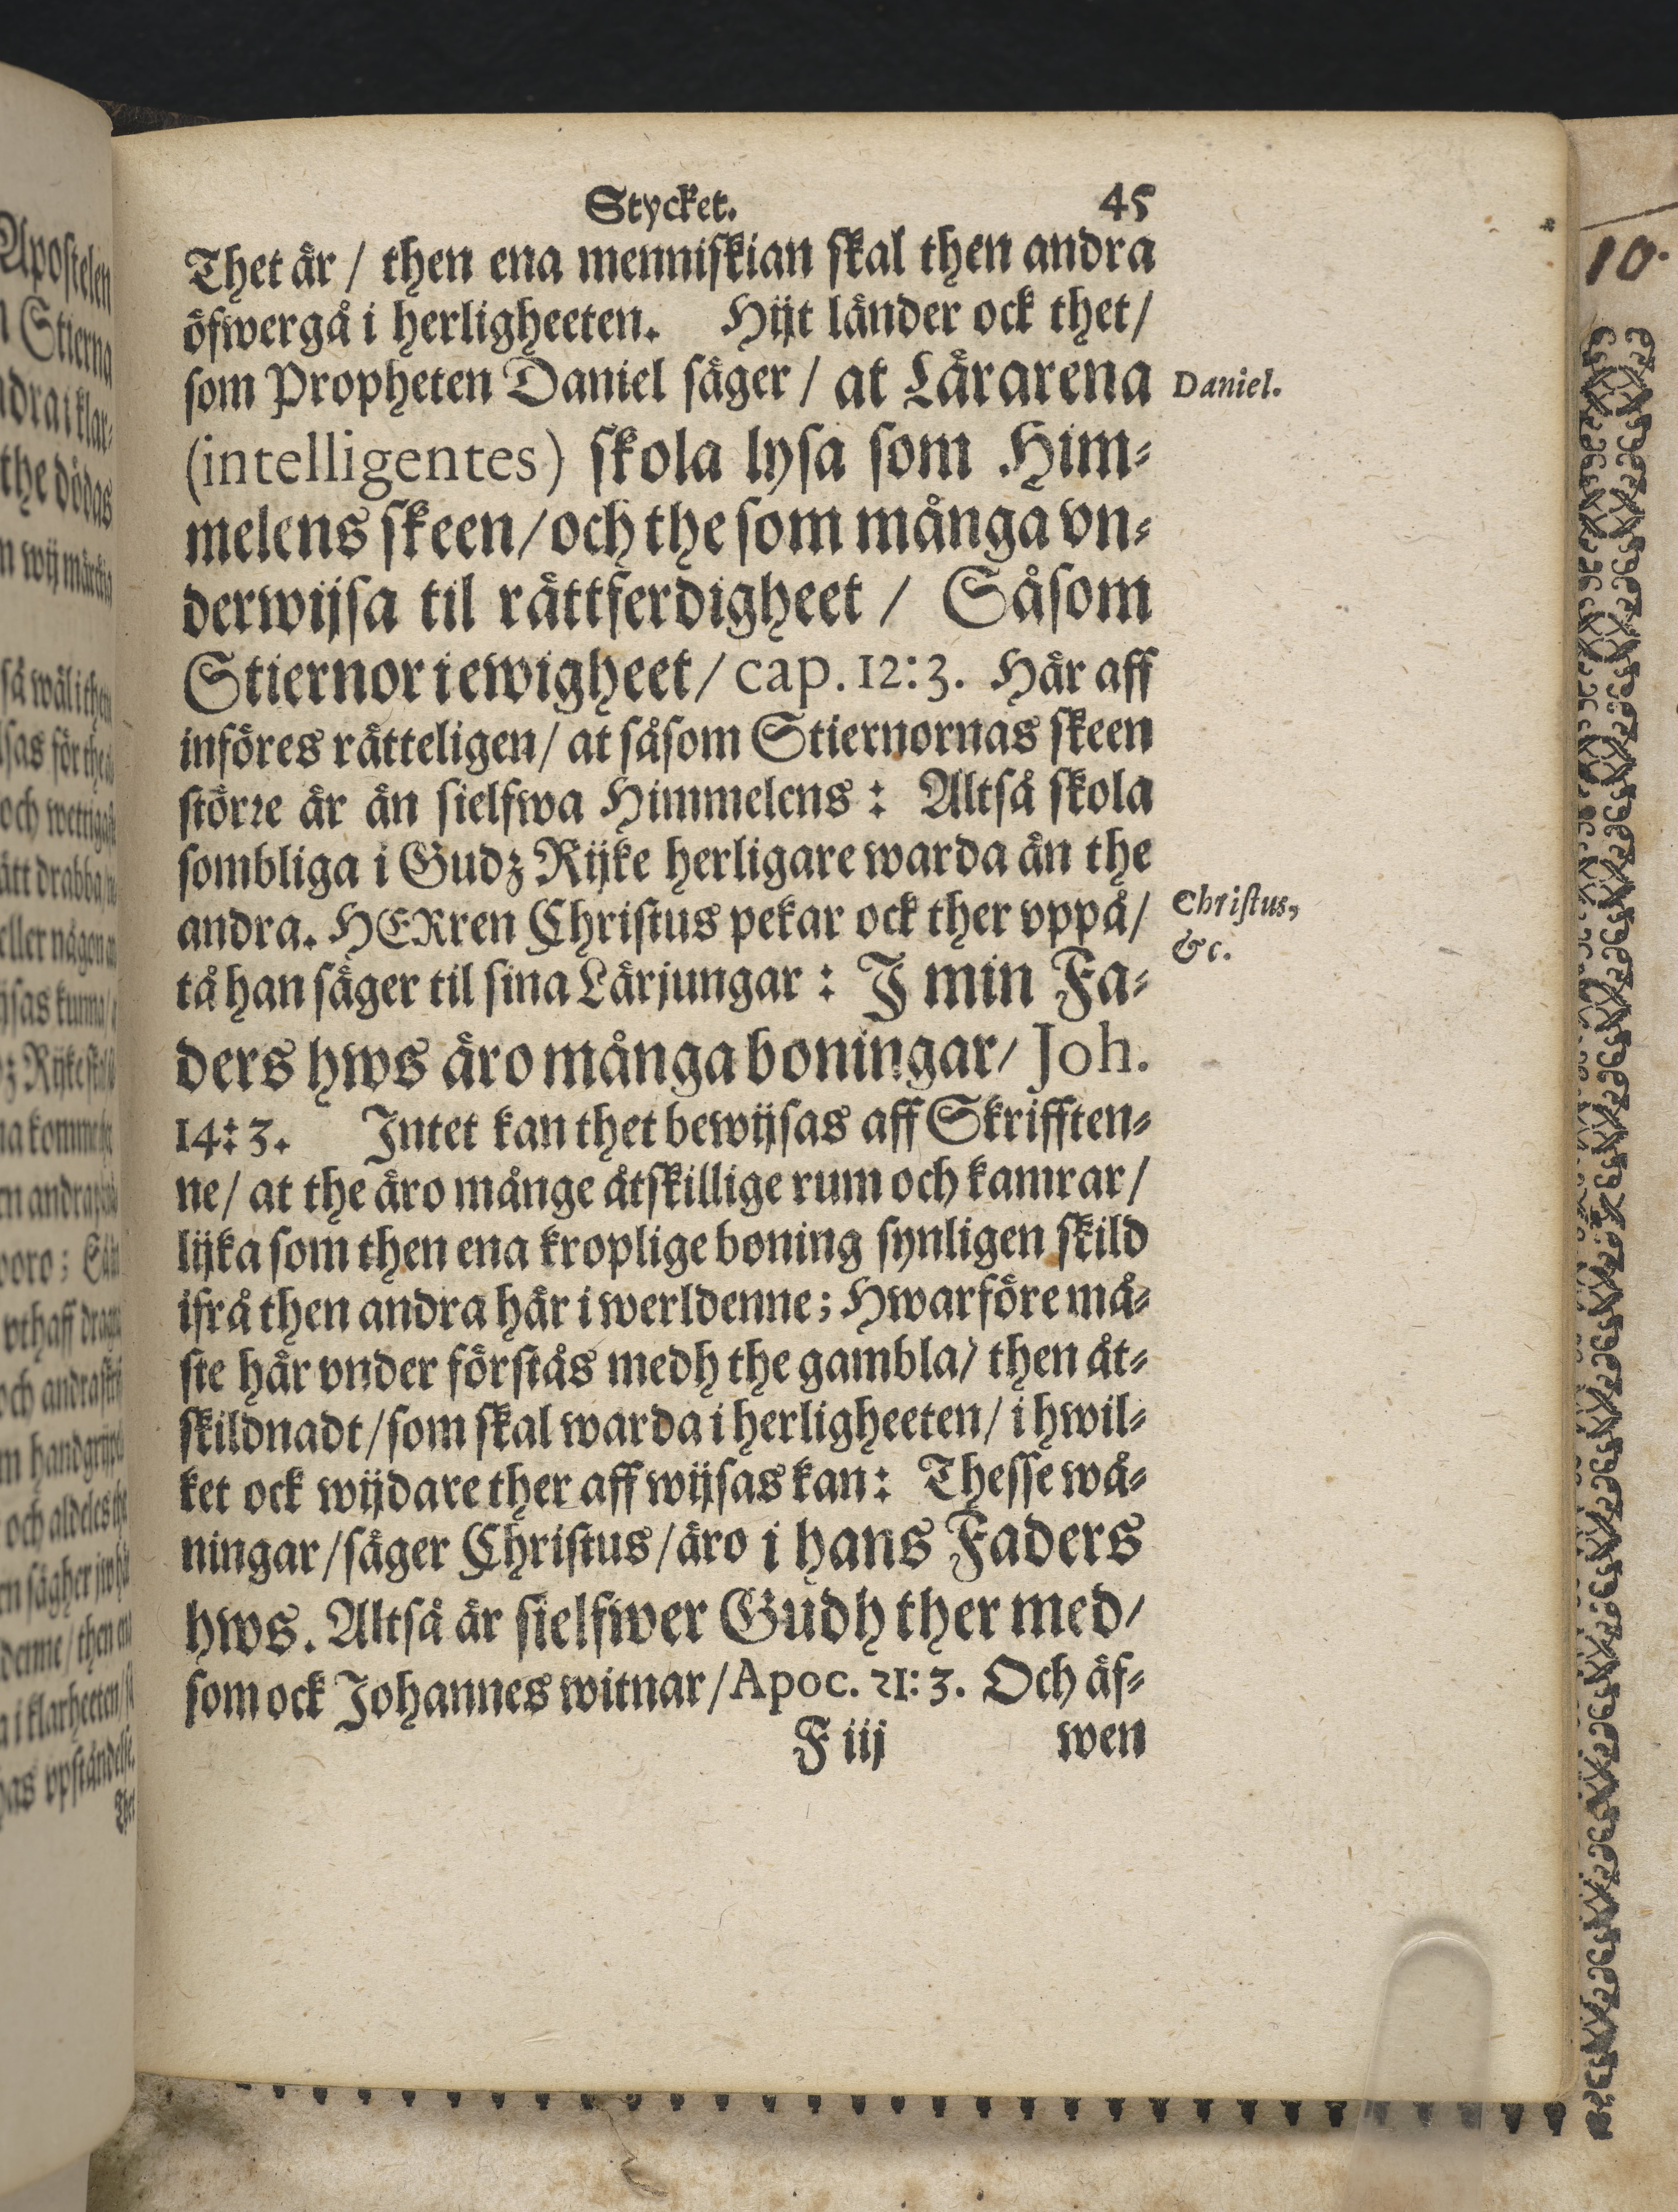 Stycket. 45
Thet är / then ena menniskian skal then andra
öfwergå i herligheeten. Hijt länder ock thet /
som Propheten Daniel säger / at Lärarena
Daniel.
(intelligentes) skola lysa som Him-
melens skeen / och the som många vn-
derwijsa til rättferdigheet / Såsom
Stiernor i ewigheet / cap. 12: 3. Här aff
införes rätteligen / at såsom Stiernornas skeen
större är än sielfwa Himmelens : Altså skola
sombliga i Gudz Rijke herligare warda än the
andra. HERren Christus pekar ock ther vppå /
Christus,
&c.
tå han säger til sina Lärjungar : I min Fa-
ders hws äro många boningar / Joh.
14: 3. Intet kan thet bewijsas aff Skrifften-
ne / at the äro månge åtskillige rum och kamrar /
lijka som then ena kroplige boning synligen skild
ifrå then andra här i werldenne; Hwarföre må-
ste här vnder förstås medh the gambla / then åt-
skildnadt / som skal warda i herligheeten / i hwil-
ket ock wijdare ther aff wijsas kan : Thesse wå-
ningar / säger Christus / äro i hans Faders
hws. Altså är sielfwer Gudh ther med /
som ock Johannes witnar / Apoc. 21: 3. Och äf-
F iij wen
10.